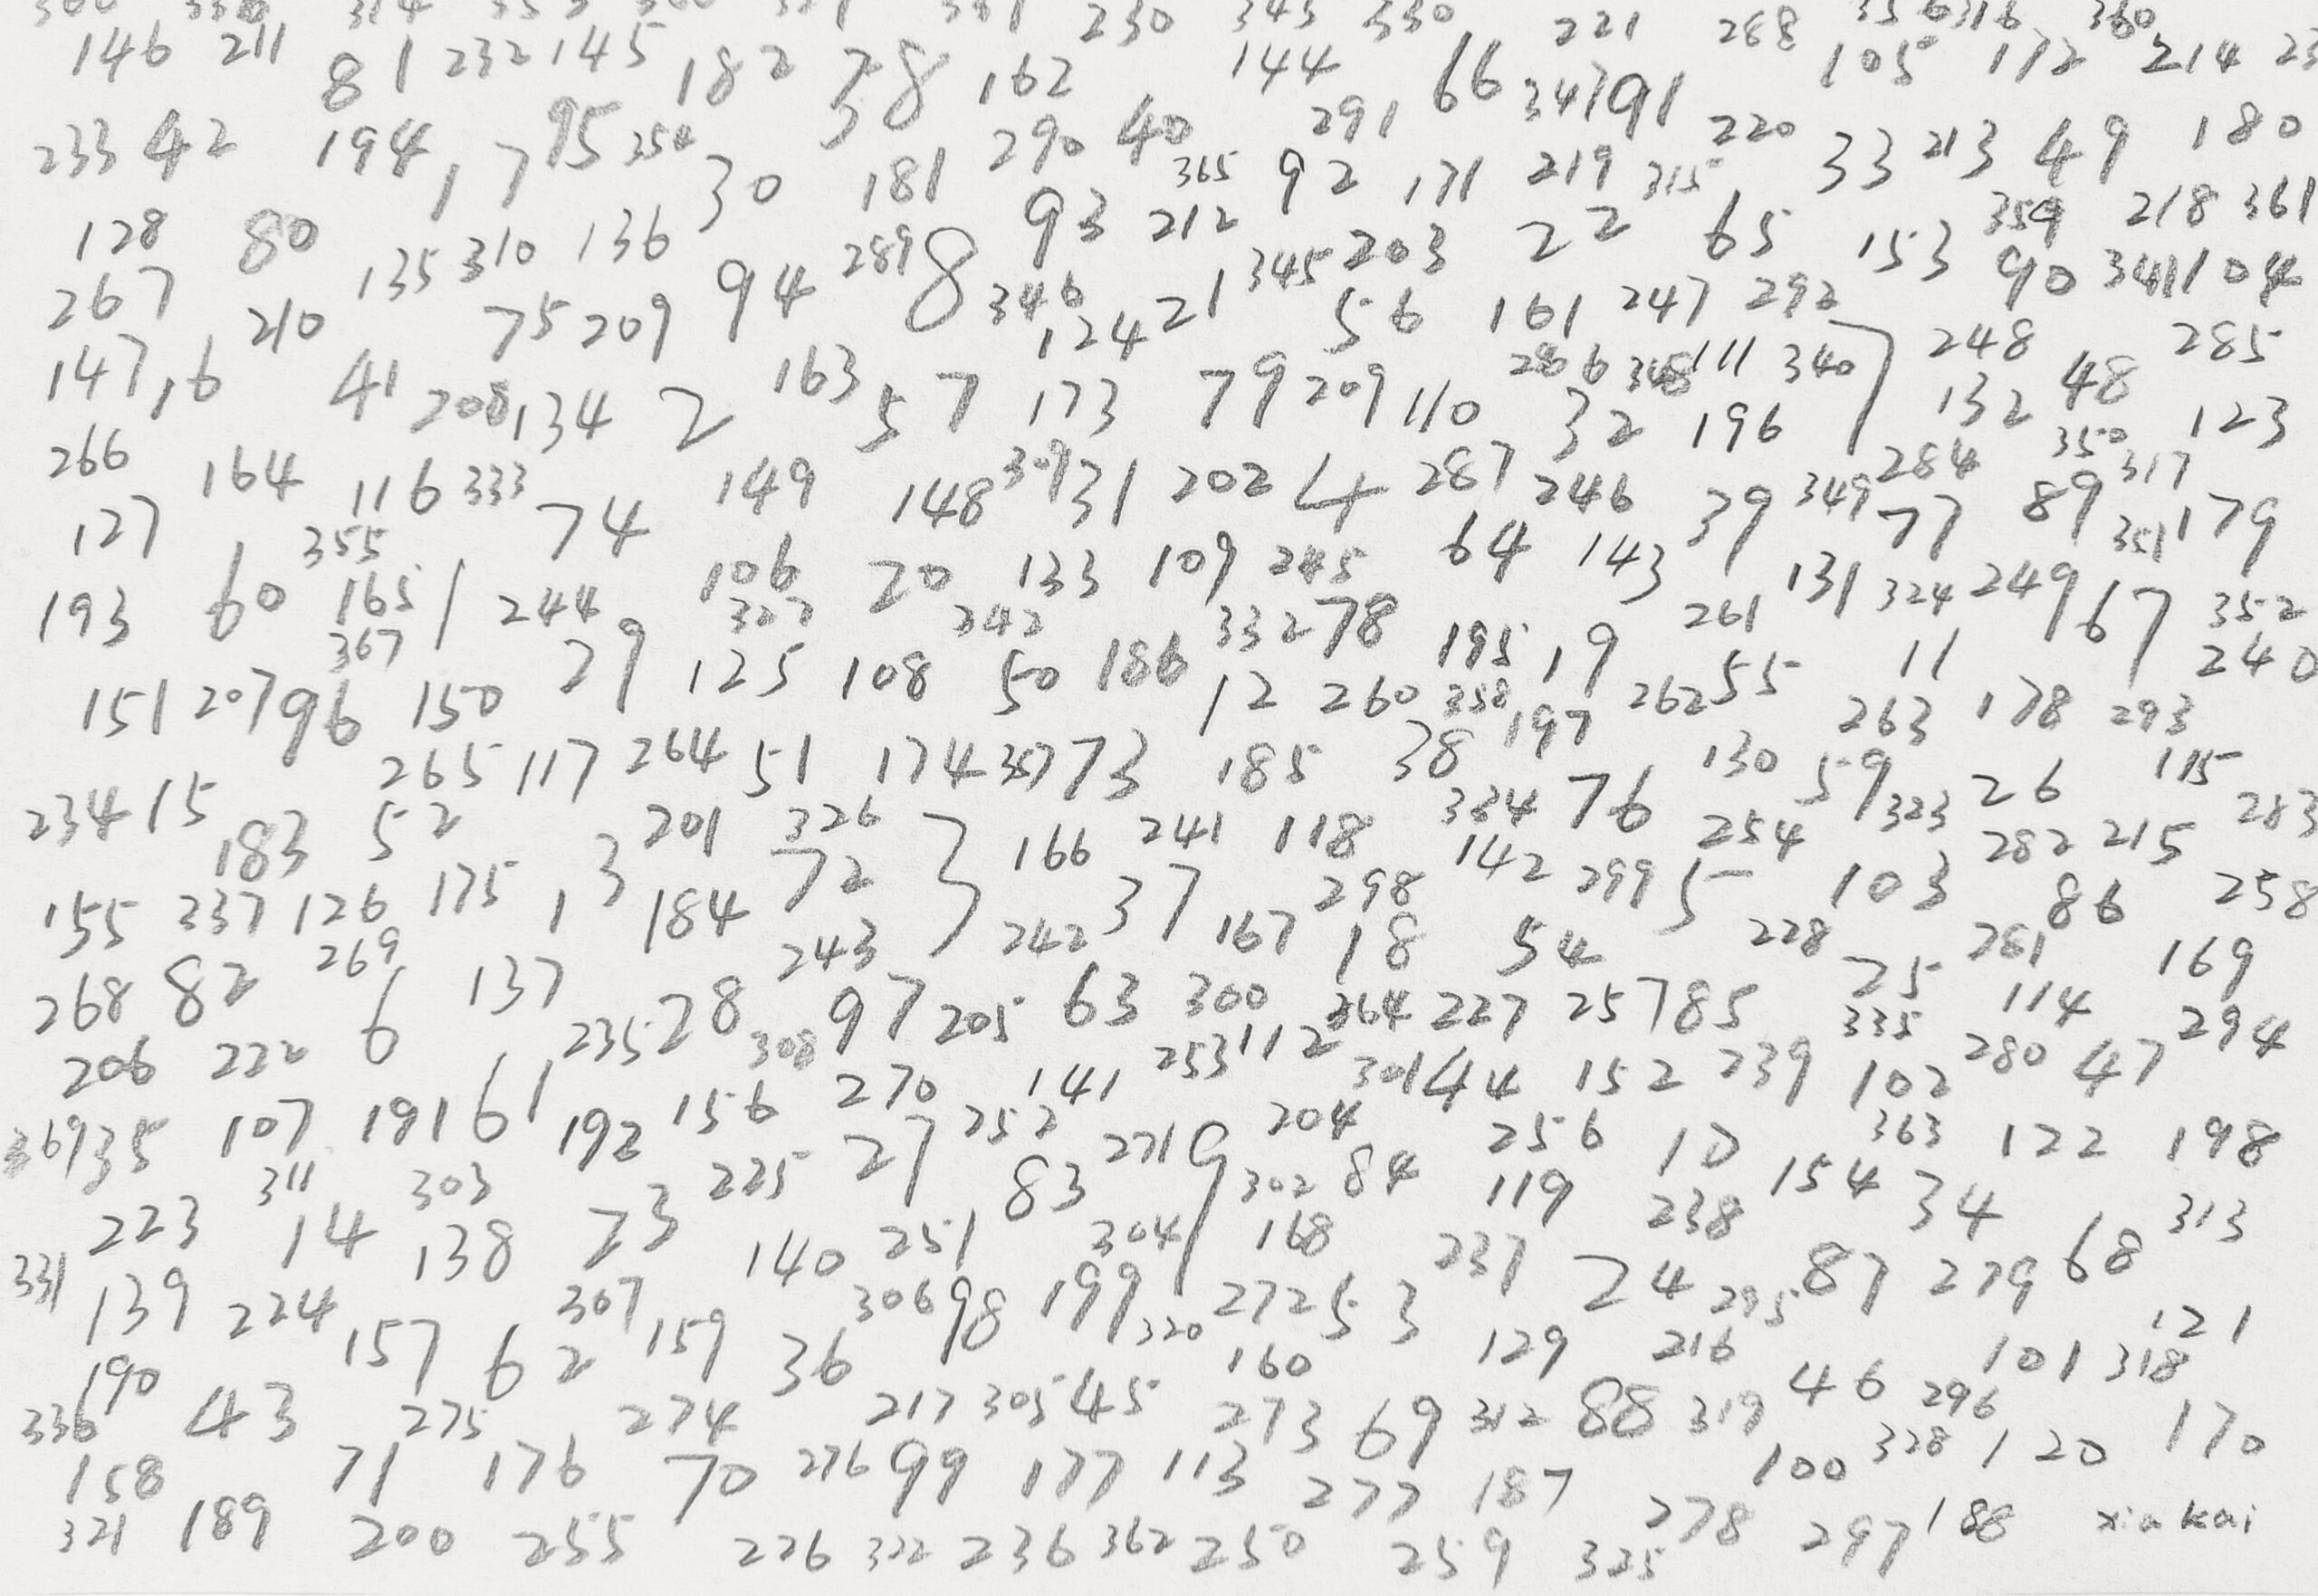 230 343 330 221 288 356 316 360
146 211 81 232 145 182 38 162 144 66 347 91 105 172 214 23
233 42 194 17 95 354 30 181 290 40 291 220 33 213 49 180
128 80 135 310 136 93 365 212 92 171 219 315 22 65 153 359 218 361
267 210 75 209 94 289 8 346 124 21 345 203 56 161 247 292 90 341 104
147 16 41 208 134 2 163 57 173 79 209 110 286 348 111 340 7 248 48 285
32 196 132 123
266 164 116 333 149 148 309 31 202 4 287 246 39 349 284 350 317
127 355 74 106 20 133 109 245 64 143 77 89 351 179
193 60 165 1 244 327 342 332 78 261 131 324 249 67 352
367 29 125 108 50 186 195 19 11 240
151 207 96 150 12 260 358 197 262 55 263 178 293
265 117 264 51 174 357 73 185 38 130 59 26 115
234 15 183 52 201 326 3 166 241 118 334 76 254 323 282 215 283
155 337 126 175 13 184 72 37 298 142 299 5 103 86 258
268 82 269 137 243 242 167 18 54 228 25 281 169
206 222 6 235 28 308 97 205 63 300 364 227 257 85 335 114 294
369 35 107 191 61 192 156 270 141 253 112 301 44 152 239 102 280 47
311 303 225 27 252 271 9 204 256 10 363 122 198
223 14 138 23 140 251 83 304 302 84 119 238 154 34 313
331 139 224 307 306 98 199 1 168 237 24 295 87 279 68
190 157 62 159 36 320 272 53 129 216 101 318 121
336 43 275 274 217 305 45 160 273 69 312 88 319 46 296 170
158 71 176 70 276 99 177 113 277 187 100 328 120
321 189 200 255 226 322 236 362 250 259 325 278 297 188 xiakai